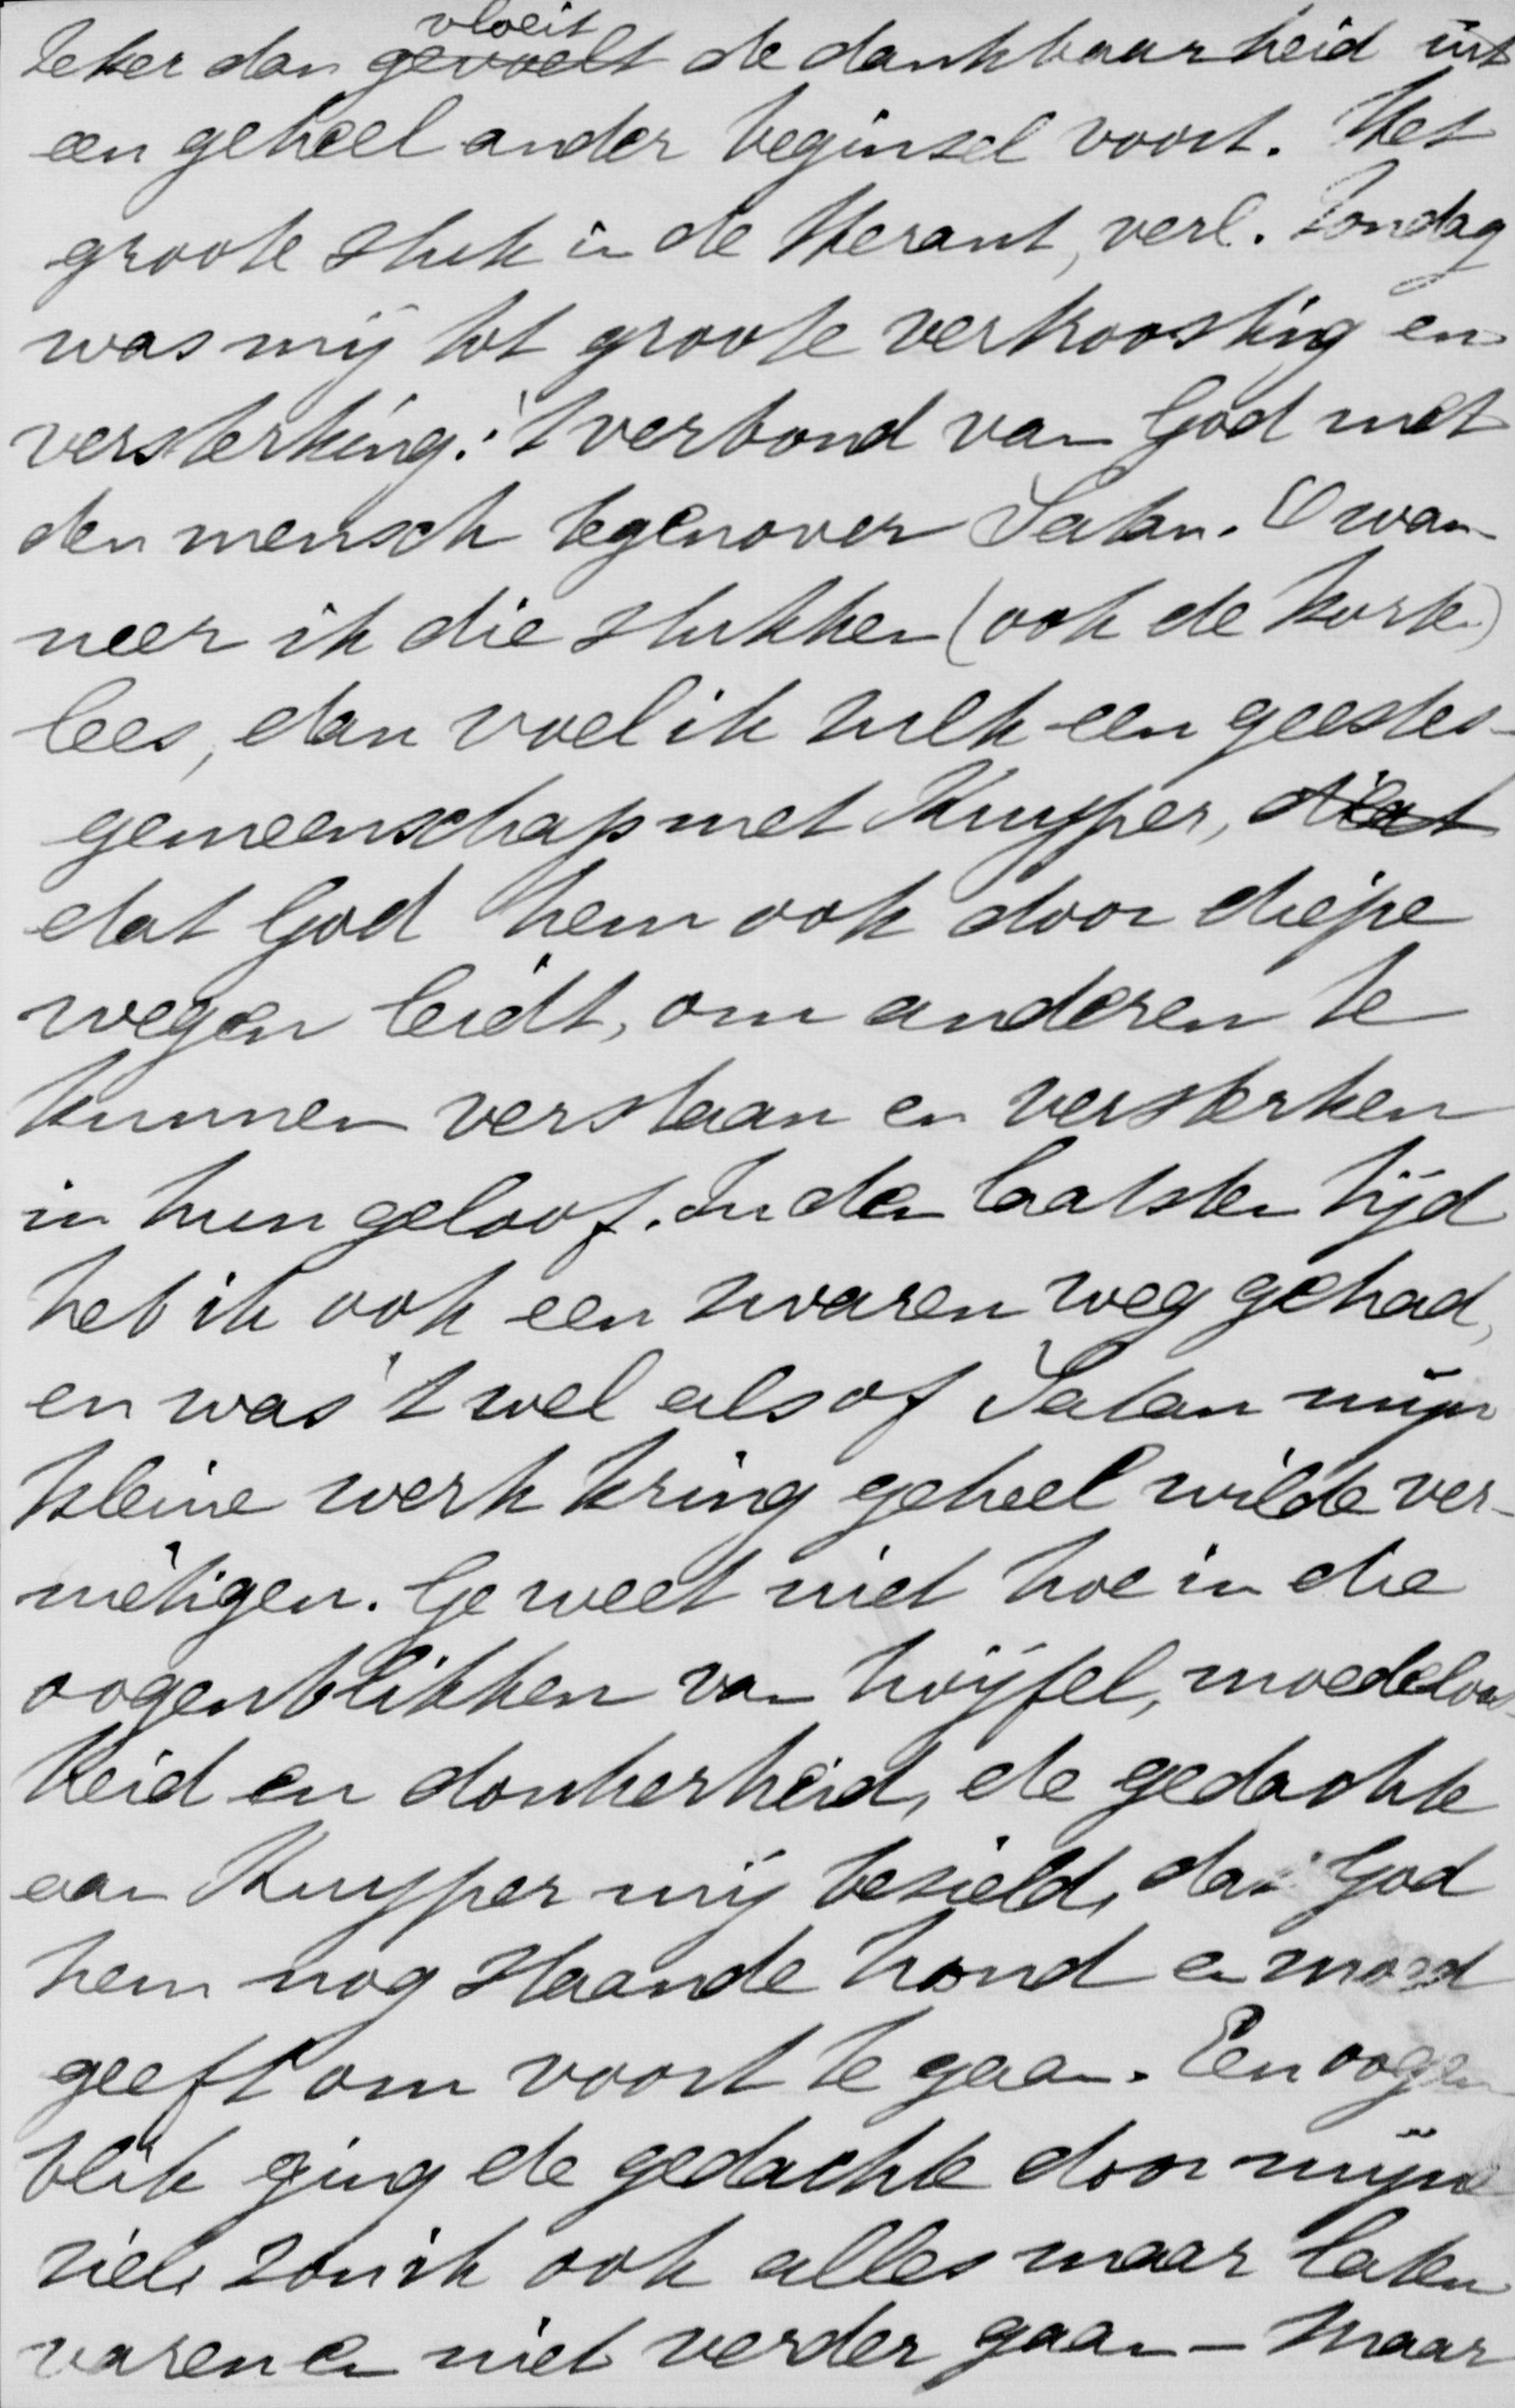 Zeker dan gevoelt vloeit de dankbaarheid uit
een geheel ander beginsel voort. Het
groote stuk in de Heraut, verl. Zondag
was mij tot groote vertroosting en
versterking: 't verbond van God met
den mensch tegenover Satan. O wan-
neer ik die stukken (ook de korte)
lees, dan voel ik zulk een geestes-
gemeenschap met Kuyper,
dat God hem ook door diepe
wegen leidt, om anderen te
kunnen verstaan en versterken
in hun geloof. In den laatsten tijd
heb ik ook een zwaren weg gehad,
en was 't wel alsof Satan mijn
kleine werkkring geheel wilde ver-
nietigen. Ge weet niet hoe in die
oogenblikken van twijfel, moedeloos-
heid en donkerheid, de gedachte
aan Kuyper mij bezield, dat God
hem nog staande hond en moed
geeft om voort te gaan. Een oogen
blik ging de gedachte door mijne
ziel, zou ik ook alles maar laten
varen en niet verder gaan — Maar